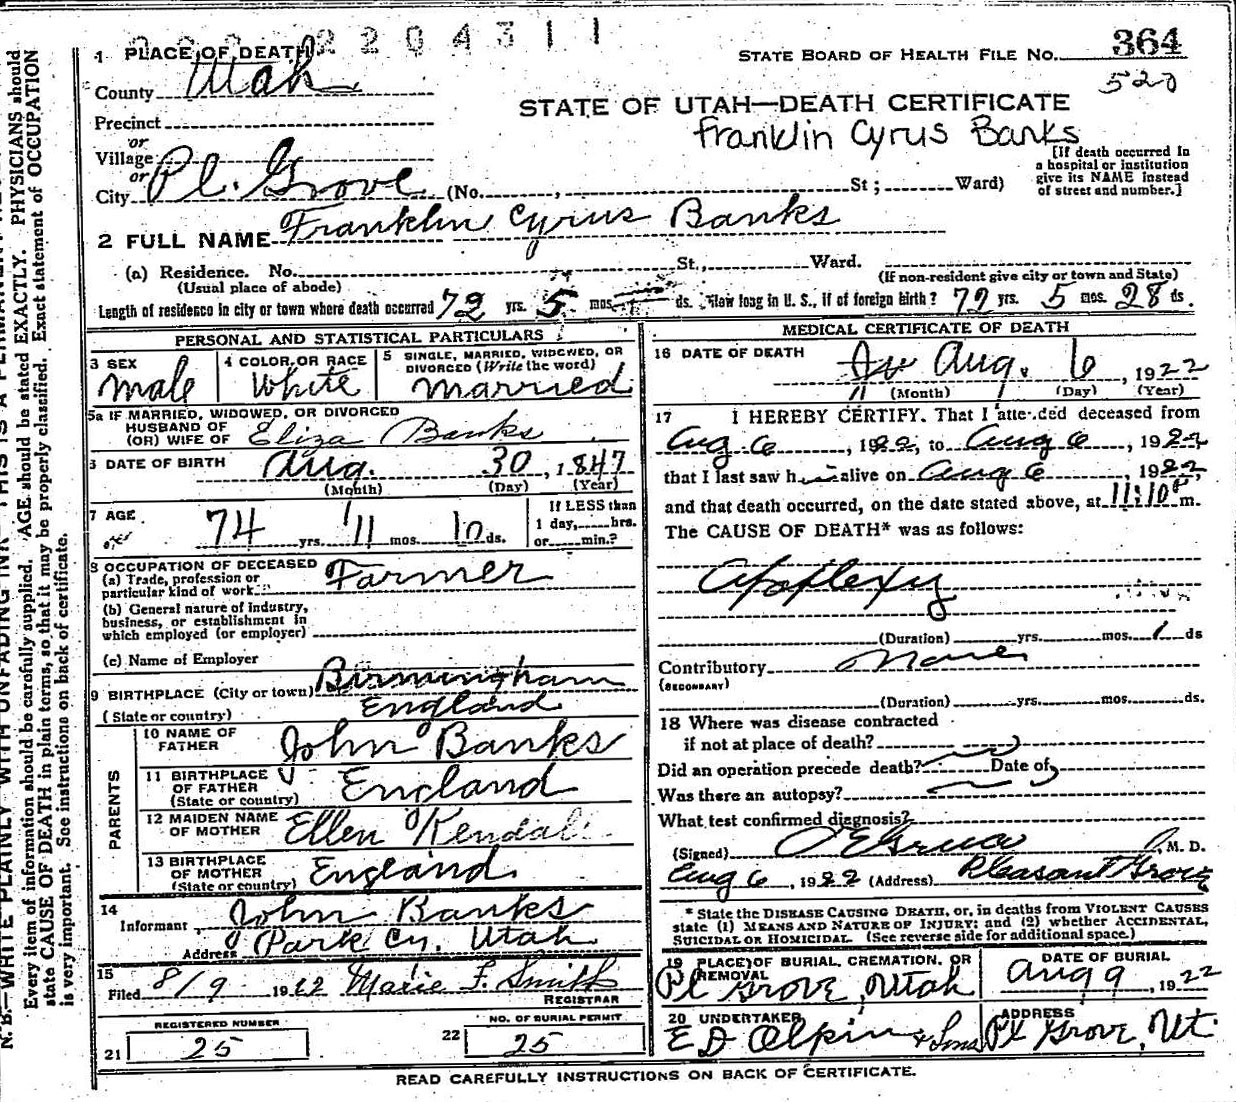 2204311
1 PLACE OF DEATH
STATE BOARD OF HEALTH FILE NO. 364
520
County Utah
STATE OF UTAH—DEATH CERTIFICATE
Franklin Cyrus Banks
Precinct
or
Village
or
City Pl. Grove (No. , St; Ward)
[If death occurred in
a hospital or institution
give its NAME instead
of street and number.]
2 FULL NAME Franklin Cyrus Banks
(a) Residence. No. St., Ward.
(Usual place of abode) (If non-resident give city or town and State)
Length of residence in city or town where death occurred 72 yrs. 5 mos. ds. How long in U. S., if of foreign birth? 72 yrs. 5 mos. 28 ds.
PERSONAL AND STATISTICAL PARTICULARS
3 SEX
male
4 COLOR OR RACE
White
5 SINGLE, MARRIED, WIDOWED, OR
DIVORCED (Write the word)
married
5a IF MARRIED, WIDOWED, OR DIVORCED
HUSBAND OF
(OR) WIFE OF Eliza Banks
6 DATE OF BIRTH Aug. 30, 1847
(Month) (Day) (Year)
7 AGE 74 yrs. 11 mos. 10 ds.
If LESS than
1 day, hrs.
or min.?
8 OCCUPATION OF DECEASED
(a) Trade, profession or
particular kind of work Farmer
(b) General nature of industry,
business, or establishment in
which employed (or employer)
(c) Name of Employer
9 BIRTHPLACE (City or town) Birmingham
(State or country) England
PARENTS
10 NAME OF
FATHER John Banks
11 BIRTHPLACE
OF FATHER
(State or country) England
12 MAIDEN NAME
OF MOTHER Ellen Kendall
13 BIRTHPLACE
OF MOTHER
(State or country) England
14
Informant John Banks
Address Park Cy. Utah
15
Filed 8/9 1922 Marie F. Smith
REGISTRAR
REGISTERED NUMBER
21 25
NO. OF BURIAL PERMIT
22 25
MEDICAL CERTIFICATE OF DEATH
16 DATE OF DEATH Aug. 6, 1922
(Month) (Day) (Year)
17 I HEREBY CERTIFY. That I attended deceased from
Aug 6, 1922, to Aug 6, 1922
that I last saw h alive on Aug 6, 1922,
and that death occurred, on the date stated above, at 11:10 P m.
The CAUSE OF DEATH* was as follows:
Apoplexy
(Duration) yrs. mos. 1 ds
Contributory None
(SECONDARY)
(Duration) yrs. mos. ds.
18 Where was disease contracted
if not at place of death?
Did an operation precede death? Date of
Was there an autopsy?
What test confirmed diagnosis?
(Signed) M. D.
Aug 6, 1922 (Address) Pleasant Grove
* State the DISEASE CAUSING DEATH, or, in deaths from VIOLENT CAUSES
state (1) MEANS AND NATURE OF INJURY; and (2) whether ACCIDENTAL,
SUICIDAL OR HOMICIDAL. (See reverse side for additional space.)
19 PLACE OF BURIAL, CREMATION, OR
REMOVAL
Pl Grove, Utah
DATE OF BURIAL
Aug 9, 1922
20 UNDERTAKER
E D Olpin & Sons
ADDRESS
Pl Grove, Ut.
READ CAREFULLY INSTRUCTIONS ON BACK OF CERTIFICATE.
N. B.—WRITE PLAINLY WITH UNFADING INK THIS IS A PERMANENT
Every item of information should be carefully supplied. AGE should be stated EXACTLY. PHYSICIANS should
state CAUSE OF DEATH in plain terms, so that it may be properly classified. Exact statement of OCCUPATION
is very important. See instructions on back of certificate.